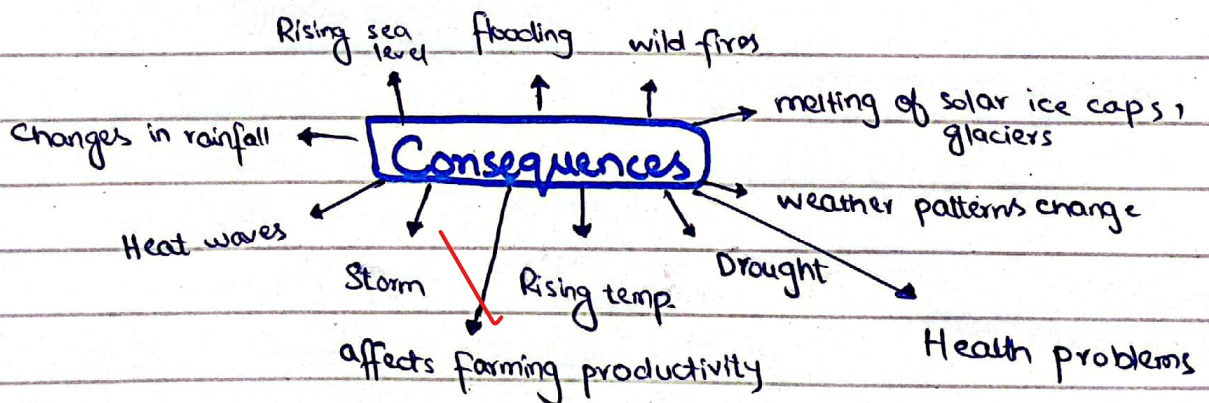 Rising sea level
flooding
wild fires
melting of solar ice caps, glaciers
Changes in rainfall
Consequences
weather patterns change
Heat waves
Storm
Rising temp.
Drought
affects farming productivity
Health problems